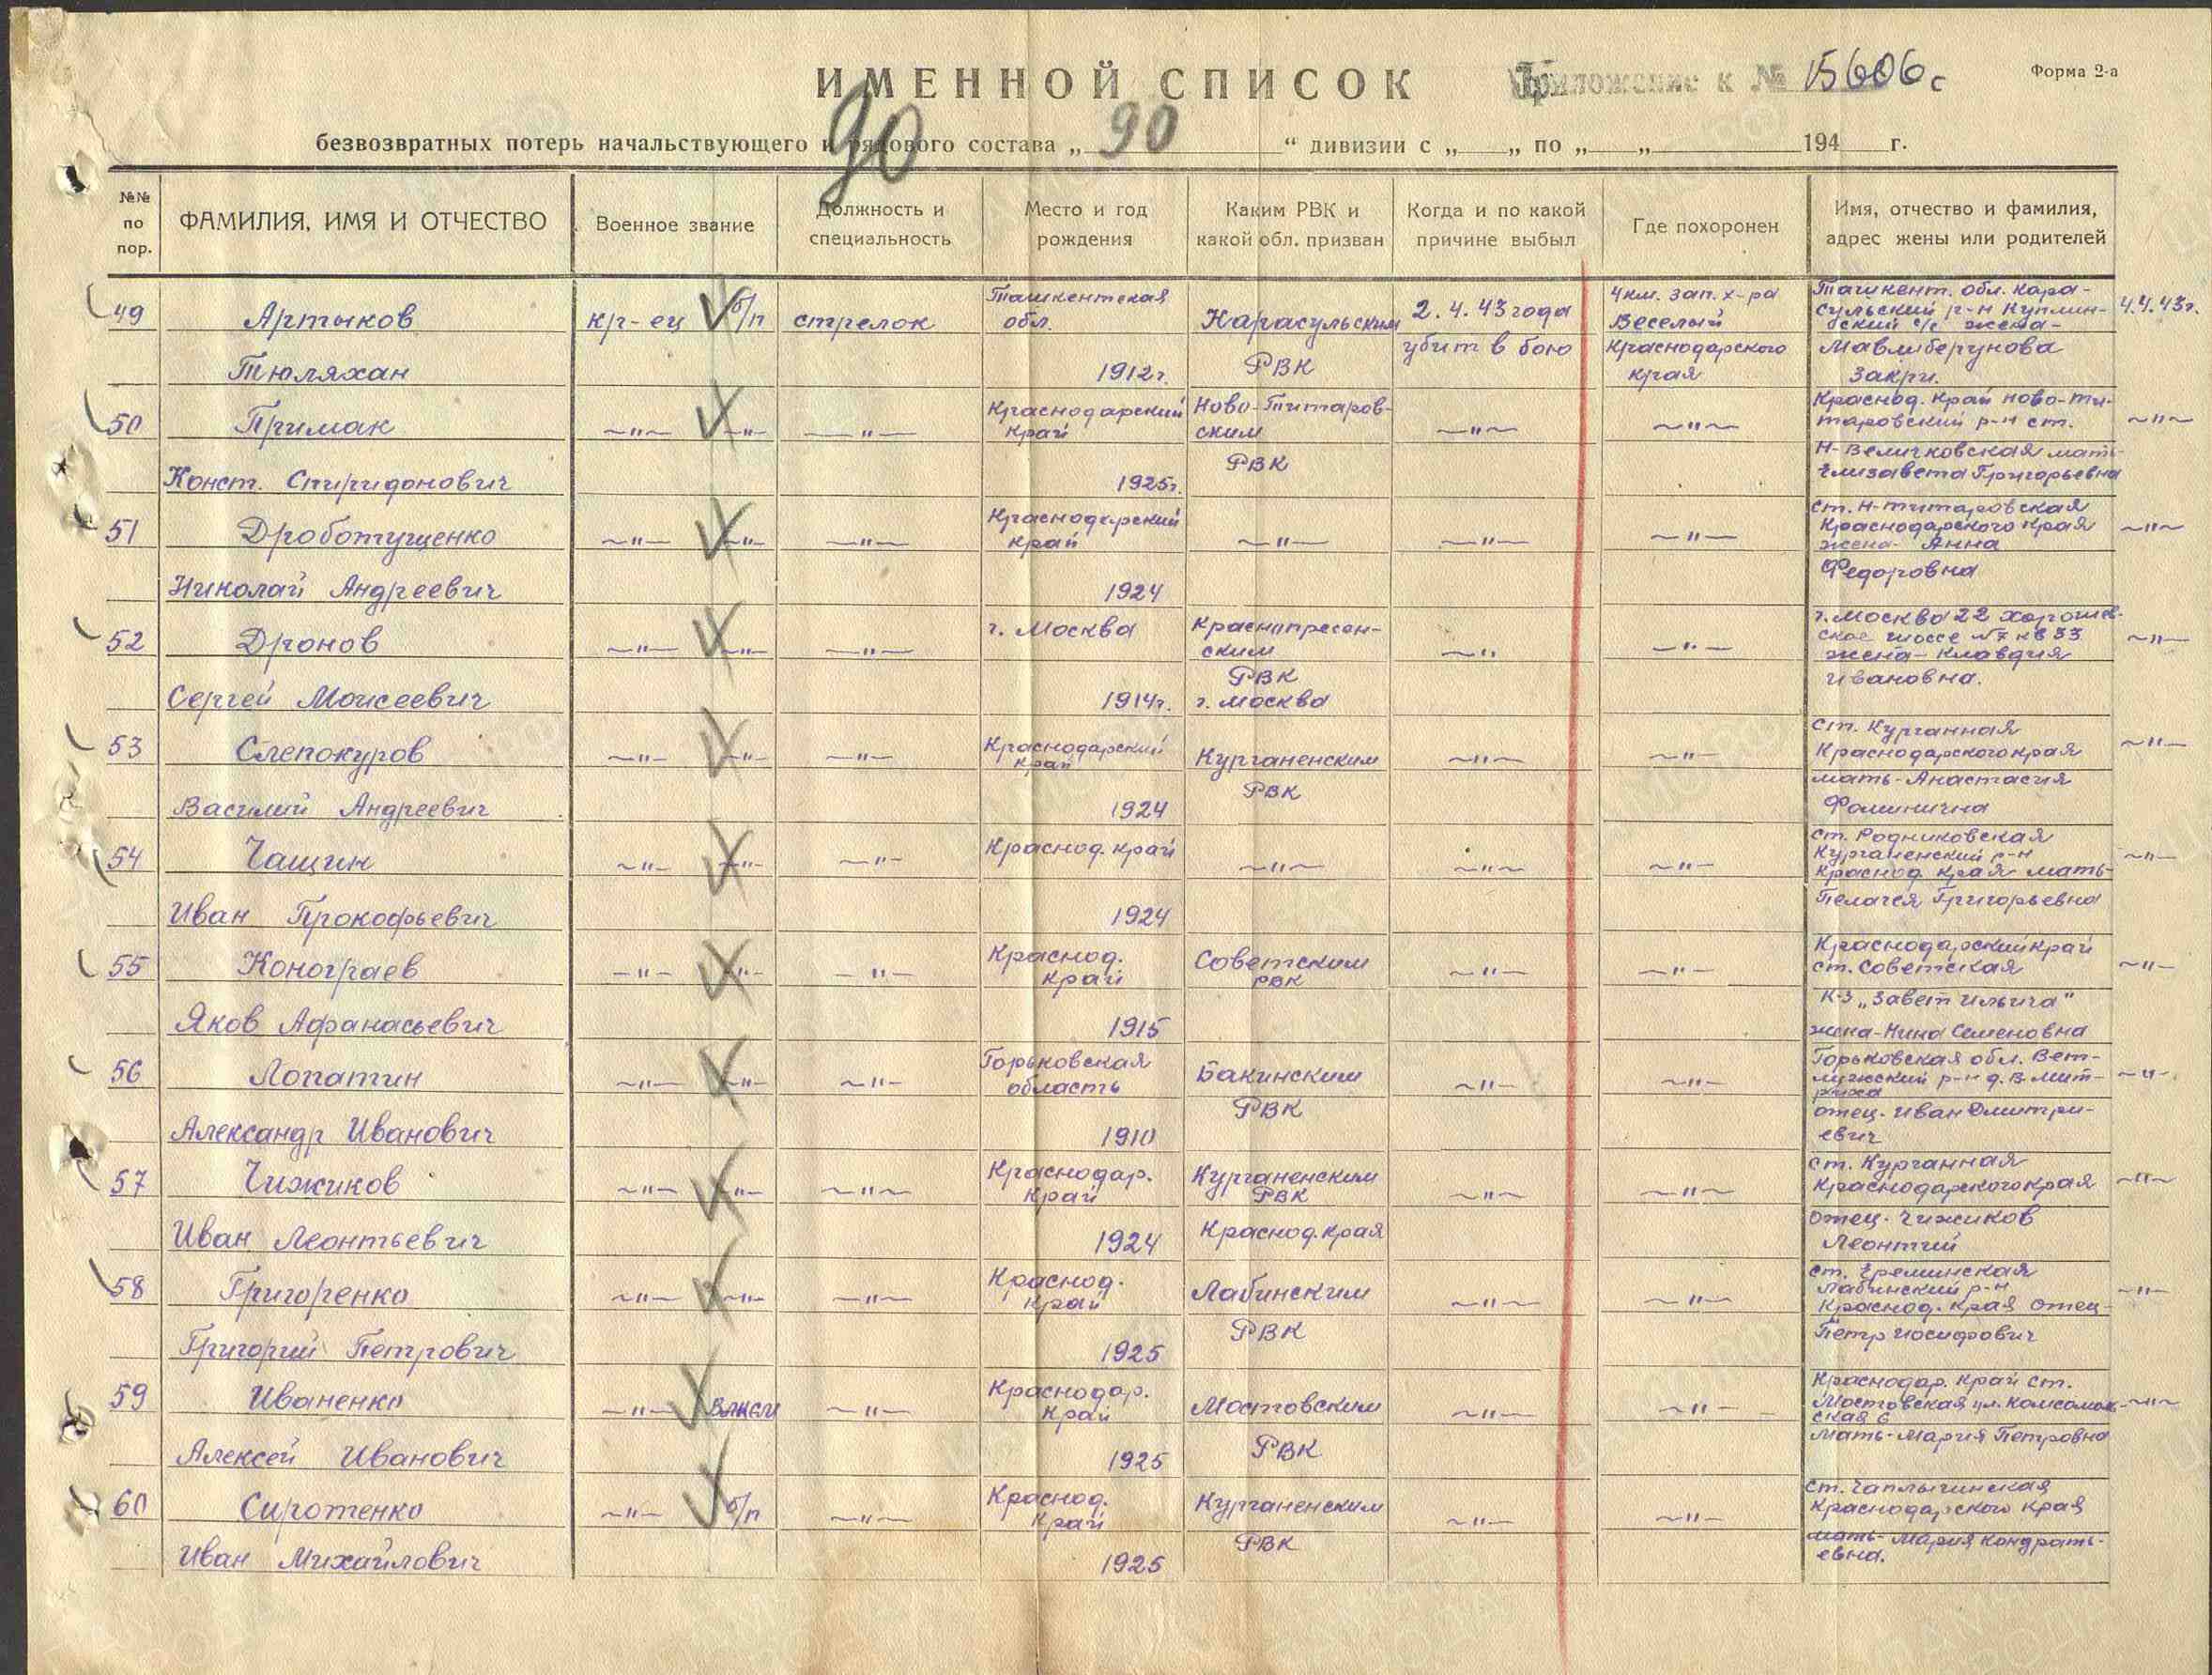 ИМЕННОЙ СПИСОК
Приложение к № 15606с
Форма 2-а
безвозвратных потерь начальствующего и рядового состава „ 90 “ дивизии с „ „ по „ „ 194 г.
90
№№ по пор.
ФАМИЛИЯ, ИМЯ И ОТЧЕСТВО
Военное звание
Должность и специальность
Место и год рождения
Каким РВК и какой обл. призван
Когда и по какой причине выбыл
Где похоронен
Имя, отчество и фамилия, адрес жены или родителей
49 Артыков Тюляхан
кр-ец б/п
стрелок
Ташкентская обл. 1912г.
Карасульским РВК
2.4.43 года убит в бою
4км. зап. х-ра Веселый Краснодарского края
Ташкент. обл. Кара-
сульский р-н Куплин-
ский с/с жена-
Мавлиберунова
Закри.
4.4.43г.
50 Примак Конст. Спиридонович
~"~ ~"~ ~"~
Краснодарский край 1925г.
Ново-Титаров-
ским РВК
~"~ ~"~
Краснод. край Ново-Ти-
таровский р-н ст.
Н-Величковская мать-
Елизавета Григорьевна
~"~
51 Дроботущенко Николай Андреевич
~"~ ~"~ ~"~
Краснодарский край 1924
~"~ ~"~ ~"~
ст. Н-Титаровская
Краснодарского края
жена- Анна
Федоровна
~"~
52 Дронов Сергей Моисеевич
~"~ ~"~ ~"~
г. Москва 1914г.
Краснопресен-
ским РВК г. Москва
~"~ ~"~
г. Москва 22 Хорошев-
ское шоссе №7 кв 33
жена- Клавдия
Ивановна.
~"~
53 Слепокуров Василий Андреевич
~"~ ~"~ ~"~
Краснодарский край 1924
Курганенским РВК
~"~ ~"~
ст. Курганная
Краснодарского края
мать- Анастасия
Фоминична
~"~
54 Чащин Иван Прокофьевич
~"~ ~"~ ~"~
Краснод. край 1924
~"~ ~"~ ~"~
ст. Родниковская
Курганенский р-н
Краснод. края мать-
Пелагея Григорьевна
~"~
55 Конограев Яков Афанасьевич
~"~ ~"~ ~"~
Краснод. край 1915
Советским РВК
~"~ ~"~
Краснодарский край
ст. Советская
к-з „Завет Ильича"
жена- Нина Семеновна
~"~
56 Лопатин Александр Иванович
~"~ ~"~ ~"~
Горьковская область 1910
Бакинским РВК
~"~ ~"~
Горьковская обл. Вет-
лужский р-н д. В. Мит-
риха
отец- Иван Дмитри-
евич
~"~
57 Чижиков Иван Леонтьевич
~"~ ~"~ ~"~
Краснодар. край 1924
Курганенским РВК Краснод. края
~"~ ~"~
ст. Курганная
Краснодарского края
отец- Чижиков
Леонтий
~"~
58 Григоренко Григорий Петрович
~"~ ~"~ ~"~
Краснод. край 1925
Лабинским РВК
~"~ ~"~
ст. Ереминская
Лабинский р-н
Краснод. края отец-
Петр Иосифович
~"~
59 Иваненко Алексей Иванович
~"~ ВЛКСМ ~"~
Краснодар. край 1925
Мостовским РВК
~"~ ~"~
Краснодар. край ст.
Мостовская ул. Комсомоль-
ская 6
мать- Мария Петровна
~"~
60 Сиротенко Иван Михайлович
~"~ б/п ~"~
Краснод. край 1925
Курганенским РВК
~"~ ~"~
ст. Чаплыгинская
Краснодарского края
мать- Мария Кондрать-
евна.